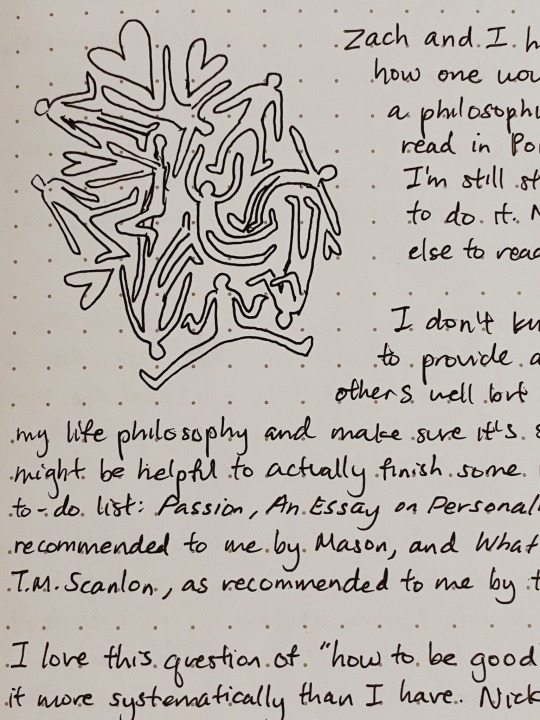 Zach and I h
how one wou
a philosophy
read in Po
I'm still st
to do it. N
else to read
I don't kn
to provide a
others well but
my life philosophy and make sure it's s
might be helpful to actually finish some
to-do list: Passion, An Essay on Personali
recommended to me by Mason, and What
T.M. Scanlon, as recommended to me by t
I love this question of "how to be good
it more systematically than I have. Nick